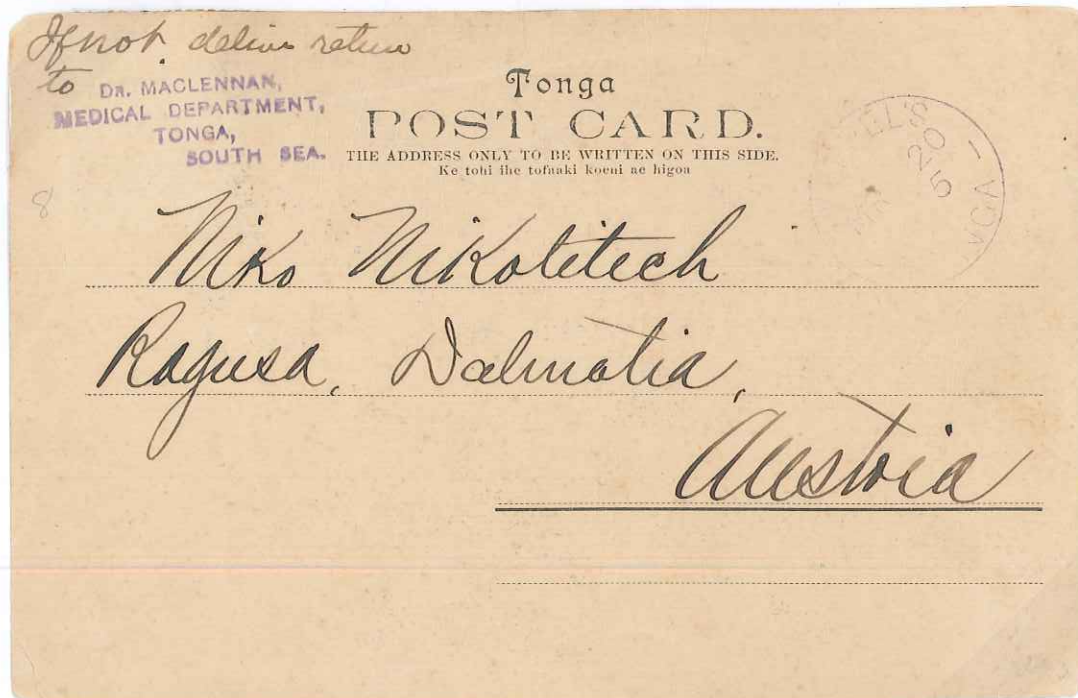 If not deliver return
to
DR. MACLENNAN,
MEDICAL DEPARTMENT,
TONGA,
SOUTH SEA.
Tonga
POST CARD.
THE ADDRESS ONLY TO BE WRITTEN ON THIS SIDE.
Ke tohi ihe tofuaki koeni ae higoa
8
Niko Nikolitech
Ragusa, Dalmatia,
Austria